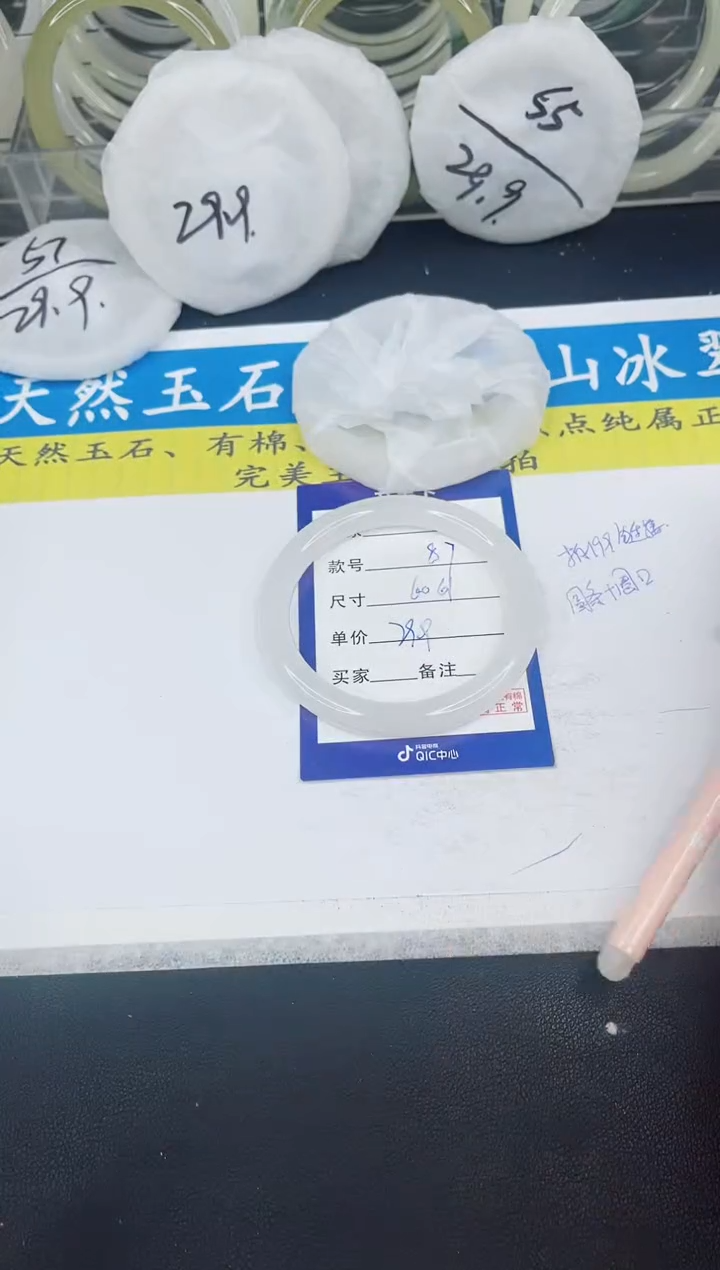 55
29.9
29.9.
57
29.9.
天然玉石 山冰翠
天然玉石、有棉、 点纯属正
完美主 拍
款号 87
尺寸
单价 29.9
买家 备注
有棉
正常
抖音电商
QIC中心